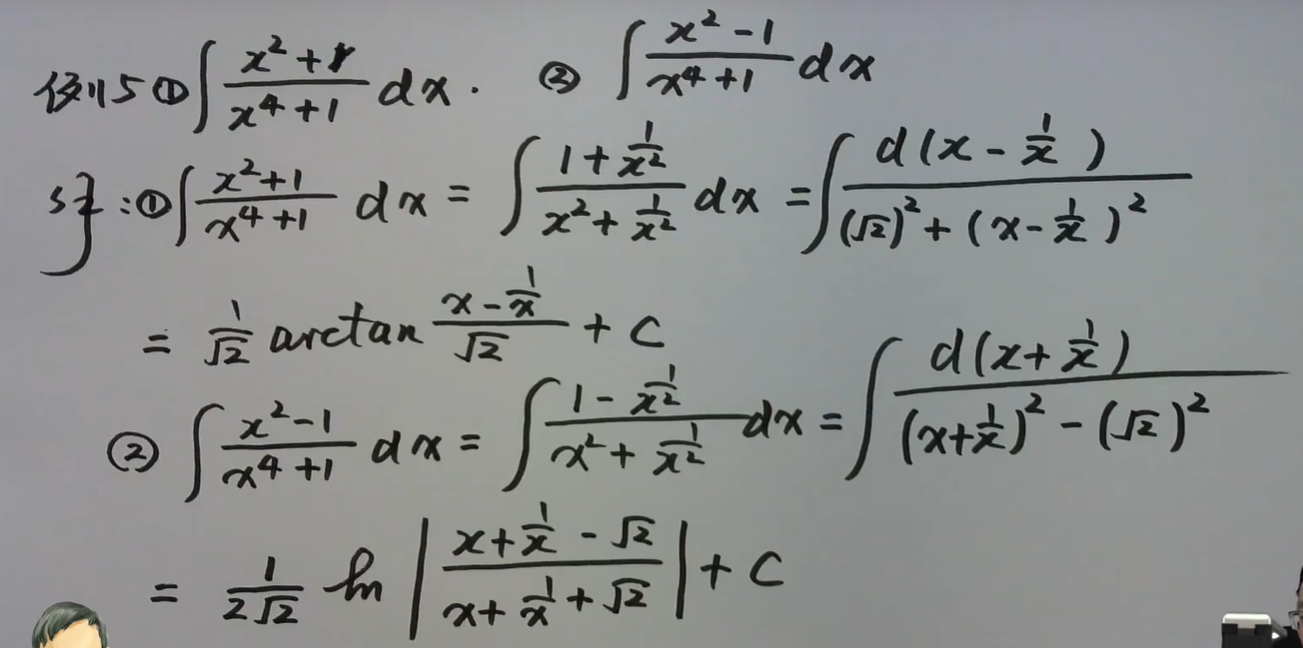 例5 ① ∫ (x²+1)/(x⁴+1) dx. ② ∫ (x²-1)/(x⁴+1) dx
解:① ∫ (x²+1)/(x⁴+1) dx = ∫ (1+1/x²)/(x²+1/x²) dx = ∫ d(x-1/x)/((√2)²+(x-1/x)²)
= 1/√2 arctan (x-1/x)/√2 + C
② ∫ (x²-1)/(x⁴+1) dx = ∫ (1-1/x²)/(x²+1/x²) dx = ∫ d(x+1/x)/((x+1/x)²-(√2)²)
= 1/(2√2) ln |(x+1/x-√2)/(x+1/x+√2)| + C